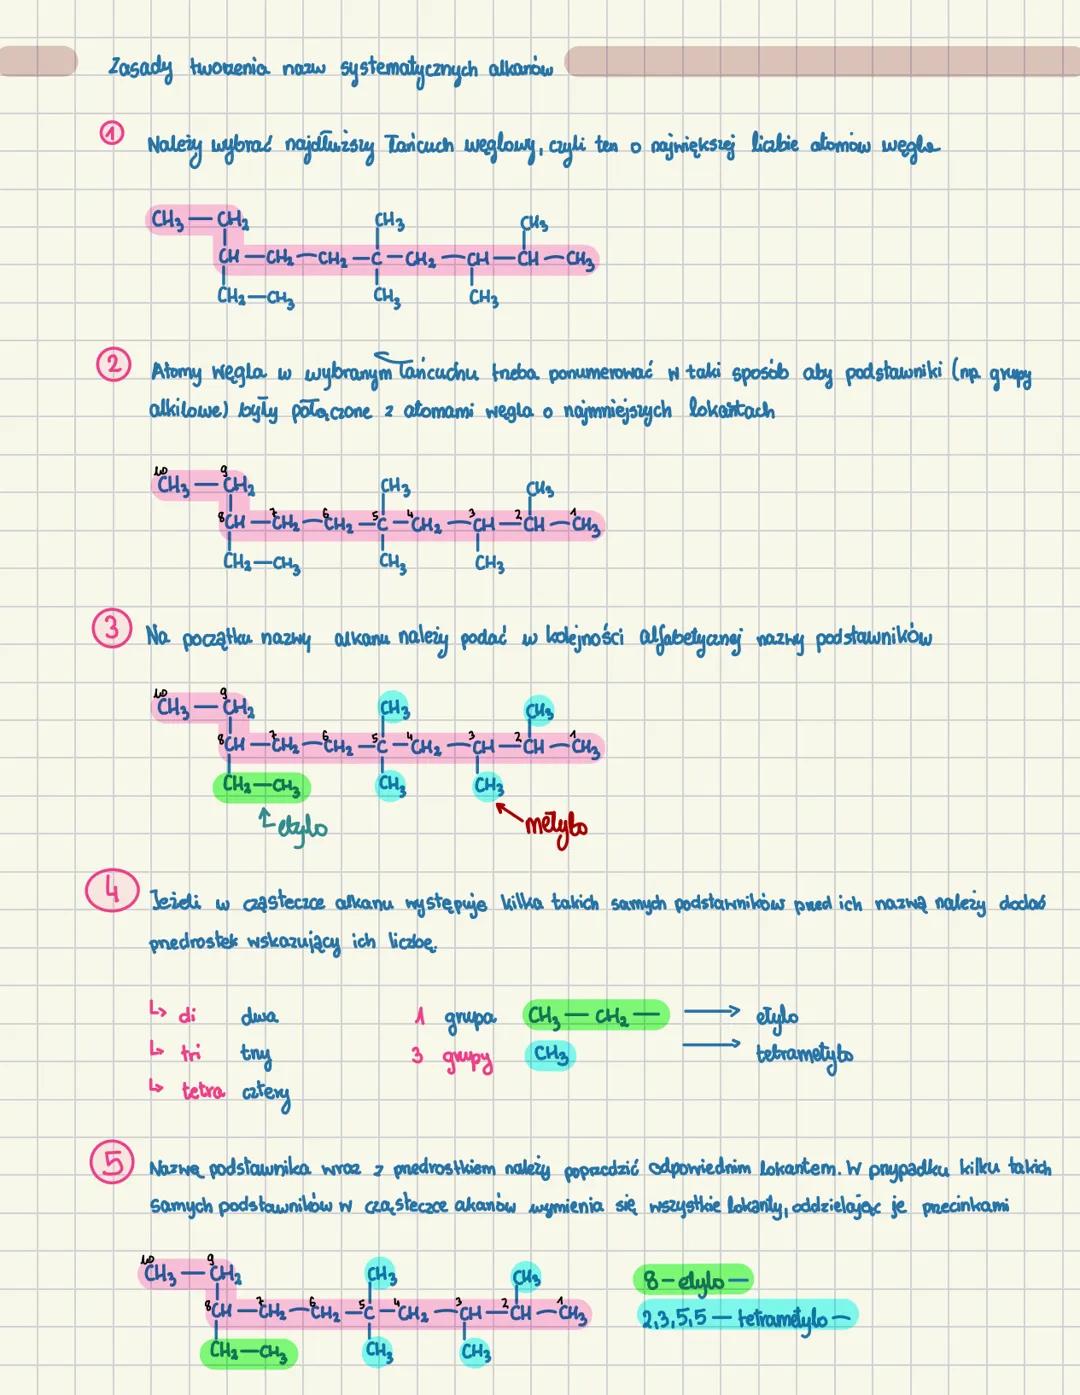 Zasady tworzenia nazw systematycznych alkanów
1 Należy wybrać najdłuższy łańcuch węglowy, czyli ten o największej liczbie atomów węgla
CH3 — CH2 CH3 CH3
CH — CH2 — CH2 — C — CH2 — CH — CH — CH3
CH2 — CH3 CH3 CH3
2 Atomy węgla w wybranym łańcuchu trzeba ponumerować w taki sposób aby podstawniki (np. grupy
alkilowe) były połączone z atomami węgla o najmniejszych lokantach
10 9
CH3 — CH2 CH3 CH3
8 7 6 5 4 3 2 1
CH — CH2 — CH2 — C — CH2 — CH — CH — CH3
CH2 — CH3 CH3 CH3
3 Na początku nazwy alkanu należy podać w kolejności alfabetycznej nazwy podstawników
10 9
CH3 — CH2 CH3 CH3
8 7 6 5 4 3 2 1
CH — CH2 — CH2 — C — CH2 — CH — CH — CH3
CH2 — CH3 CH3 CH3
↑ etylo metylo
4 Jeżeli w cząsteczce alkanu występuje kilka takich samych podstawników przed ich nazwą należy dodać
przedrostek wskazujący ich liczbę.
↳ di dwa 1 grupa CH3 — CH2 — → etylo
↳ tri trzy 3 grupy CH3 → tetrametylo
↳ tetra cztery
5 Nazwę podstawnika wraz z przedrostkiem należy poprzedzić odpowiednim lokantem. W przypadku kilku takich
samych podstawników w cząsteczce akanów wymienia się wszystkie lokanty, oddzielając je przecinkami
10 9
CH3 — CH2 CH3 CH3 8 - etylo —
8 7 6 5 4 3 2 1
CH — CH2 — CH2 — C — CH2 — CH — CH — CH3 2,3,5,5 — tetrametylo —
CH2 — CH3 CH3 CH3